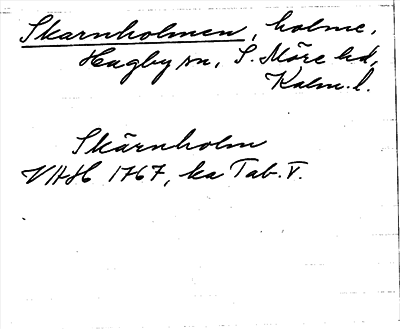 Skarnholmen, holme,
Hagby sn, S. Möre hd,
Kalm. l.
Skärnholm
VHH 1767, ka Tab. V.